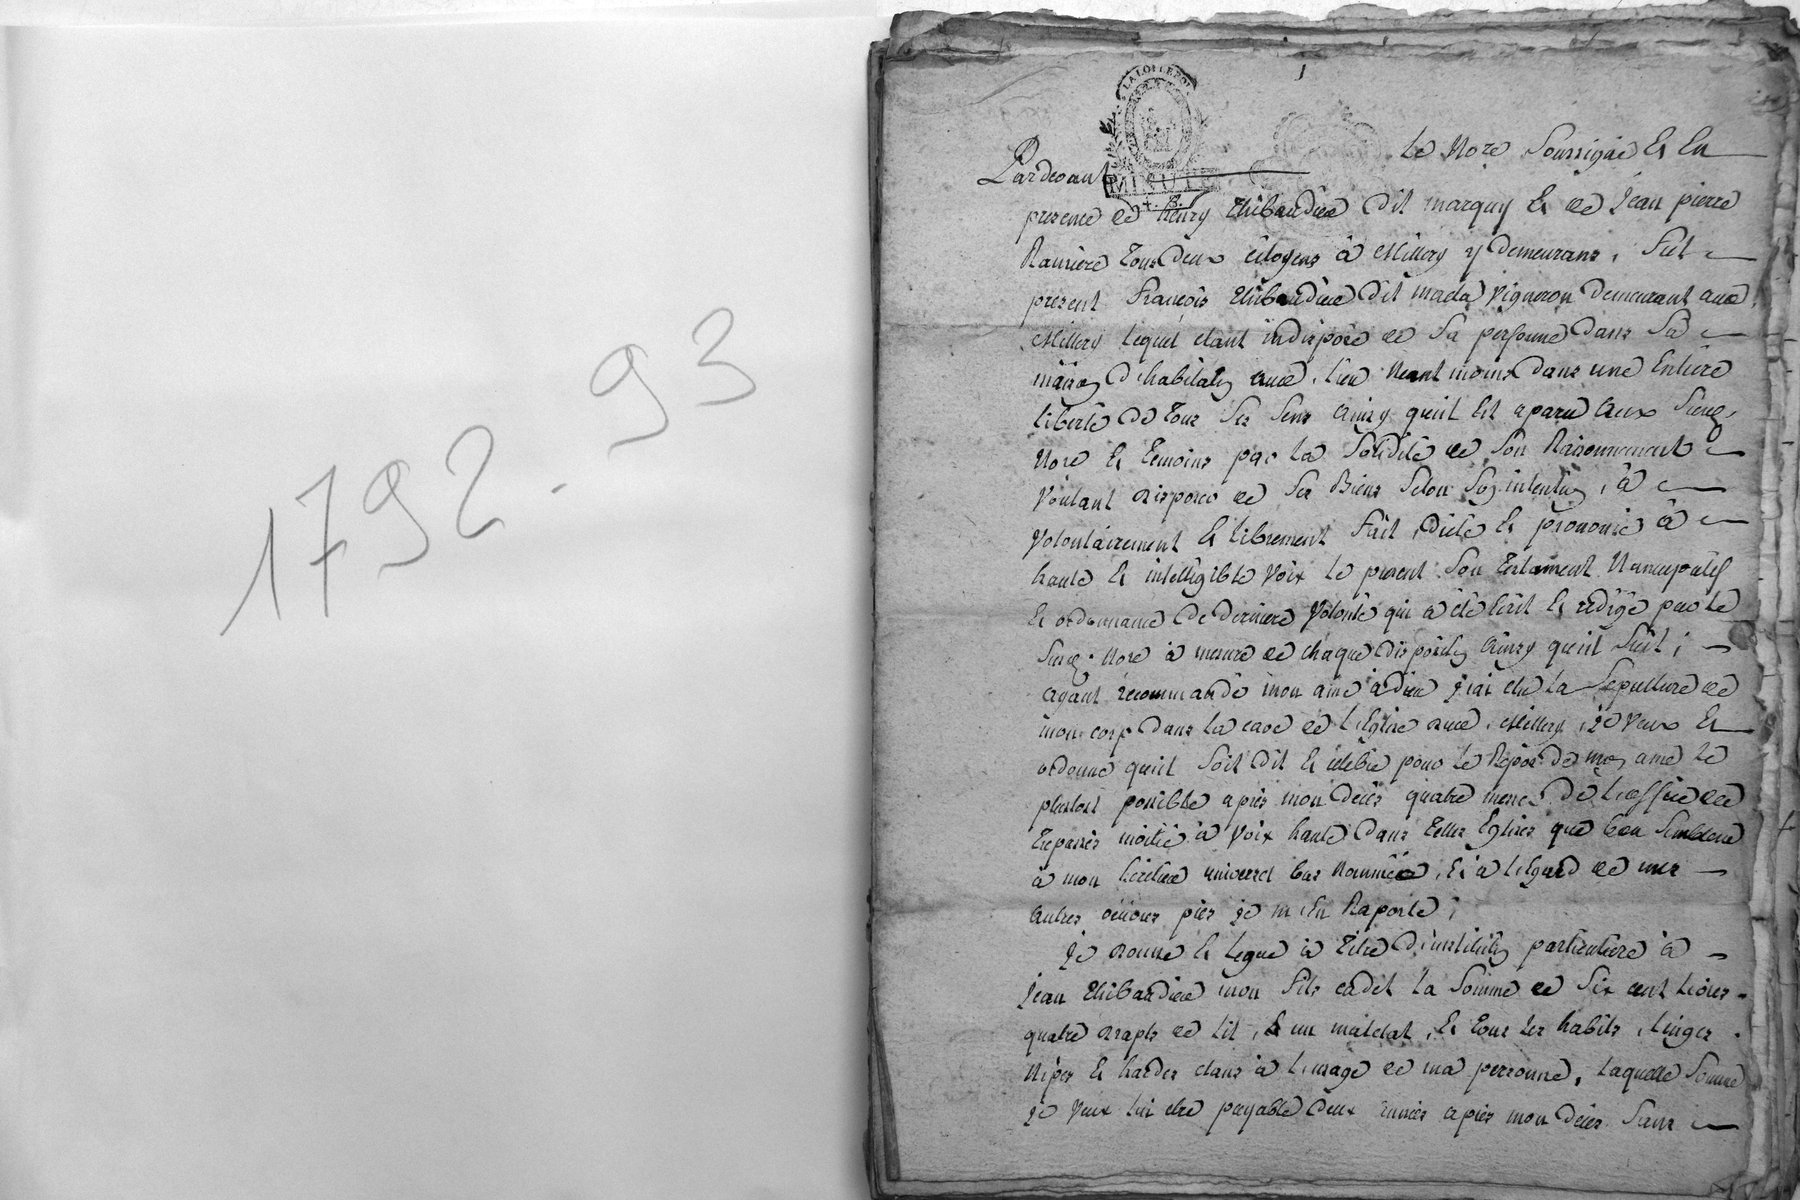 1792-93
1
LA LOI LE ROI
MINUTE
Pardevant le Nore Soussigné Et En
presence de henry thibaudier dit marquy Et de Jean pierre
tous deux citoyens à Millery y demeurans, fut
present François thibaudier dit mada vigneron demeurant aud.
Millery lequel etant indisposé de Sa personne dans Sa
maison d'habitaon aud. lieu Neant moins dans une Entiere
liberté de tous Ses Sens ainsy quil Est aparu aux Susd.
Nore Et temoins par la Solidité de Son Raisonnement
Voulant disposer de Ses Biens Selon Son intention, à
Volontairement Et librement fait, dicté Et prononcé à
haute Et intelligible Voix le present Son testament Nuncupatif
Et ordonnance de derniere Volonté qui à été Ecrit Et redigé par le
Susd. Nore à mesure de chaque dispositon ainsy quil Suit;
ayant recommandé mon ame à dieu j'ai elu la Sepulture de
mon corp dans la cave de l'Eglise dud. Millery, je Veux Et
ordonne quil Soit dit Et célébré pour le Repos de mon ame le
plustost possible après mon decès quatre messes de l'office des
trepassés moitié à Voix haute dans telles Eglises que bon Semblera
à mon héritier universel bas Nommé, Et à l'Egard de mes
autres œuvres pies je m'En Raporte;
Je donne Et legue à titre d'institution particuliere à
Jean thibaudier mon fils cadet la Somme de Six cent livres
quatre draps de lit, & un matelat, Et tous les habits, linges
Nipes Et hardes etans à l'usage de ma personne, laquelle Somme
je Veux lui etre payable deux années après mon decès Sans